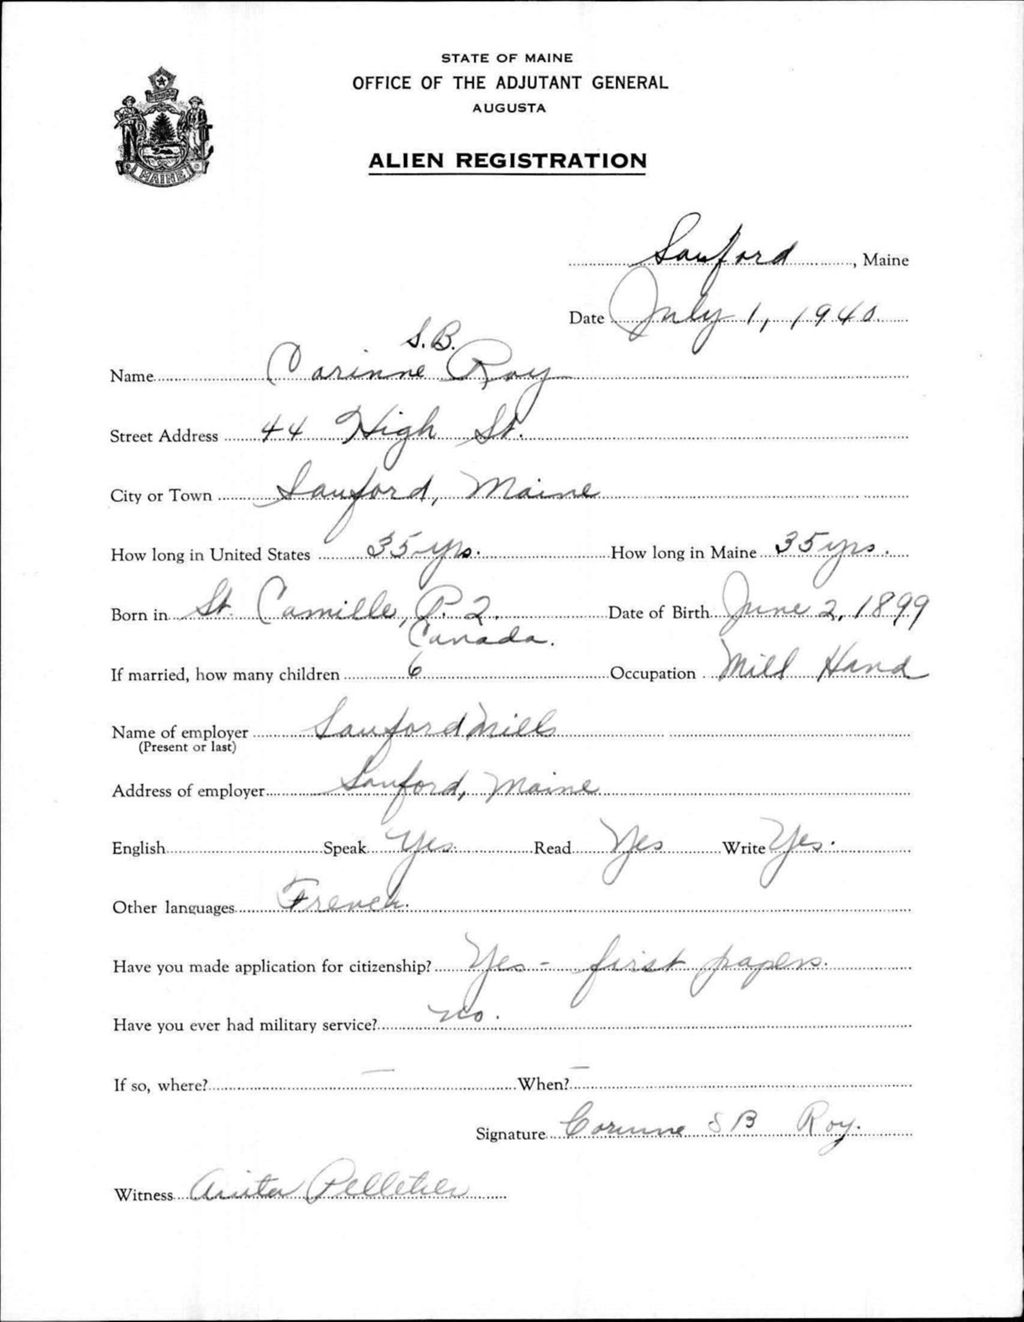 STATE OF MAINE
OFFICE OF THE ADJUTANT GENERAL
AUGUSTA
ALIEN REGISTRATION
MAINE
Sanford, Maine
Date July 1, 1940.
S.B.
Name Corinne Roy
Street Address 44 High St.
City or Town Sanford, Maine
How long in United States 35 yrs. How long in Maine 35 yrs.
Born in St. Camille, P.Q. Date of Birth June 2, 1899
Canada.
If married, how many children 6 Occupation Mill Hand
Name of employer Sanford Mills
(Present or last)
Address of employer Sanford, Maine
English Speak Yes. Read Yes Write Yes.
Other languages French.
Have you made application for citizenship? Yes - first papers.
Have you ever had military service? no.
If so, where? — When? —
Signature Corinne S B Roy.
Witness Anita Pelletier